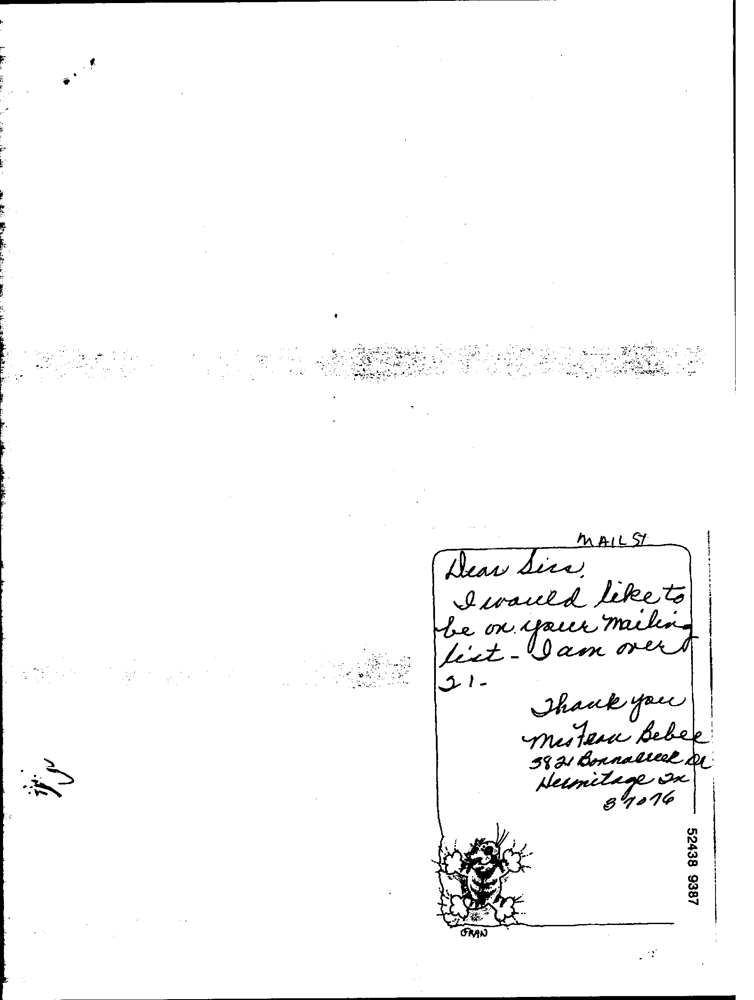 MAIL ST
Dear Sirs,
I would like to
be on your mailing
list - I am over
21 -
Thank you
Mrs Bebee
3821 Dr
Hermitage Tn
37076
52438 9387
GRAN